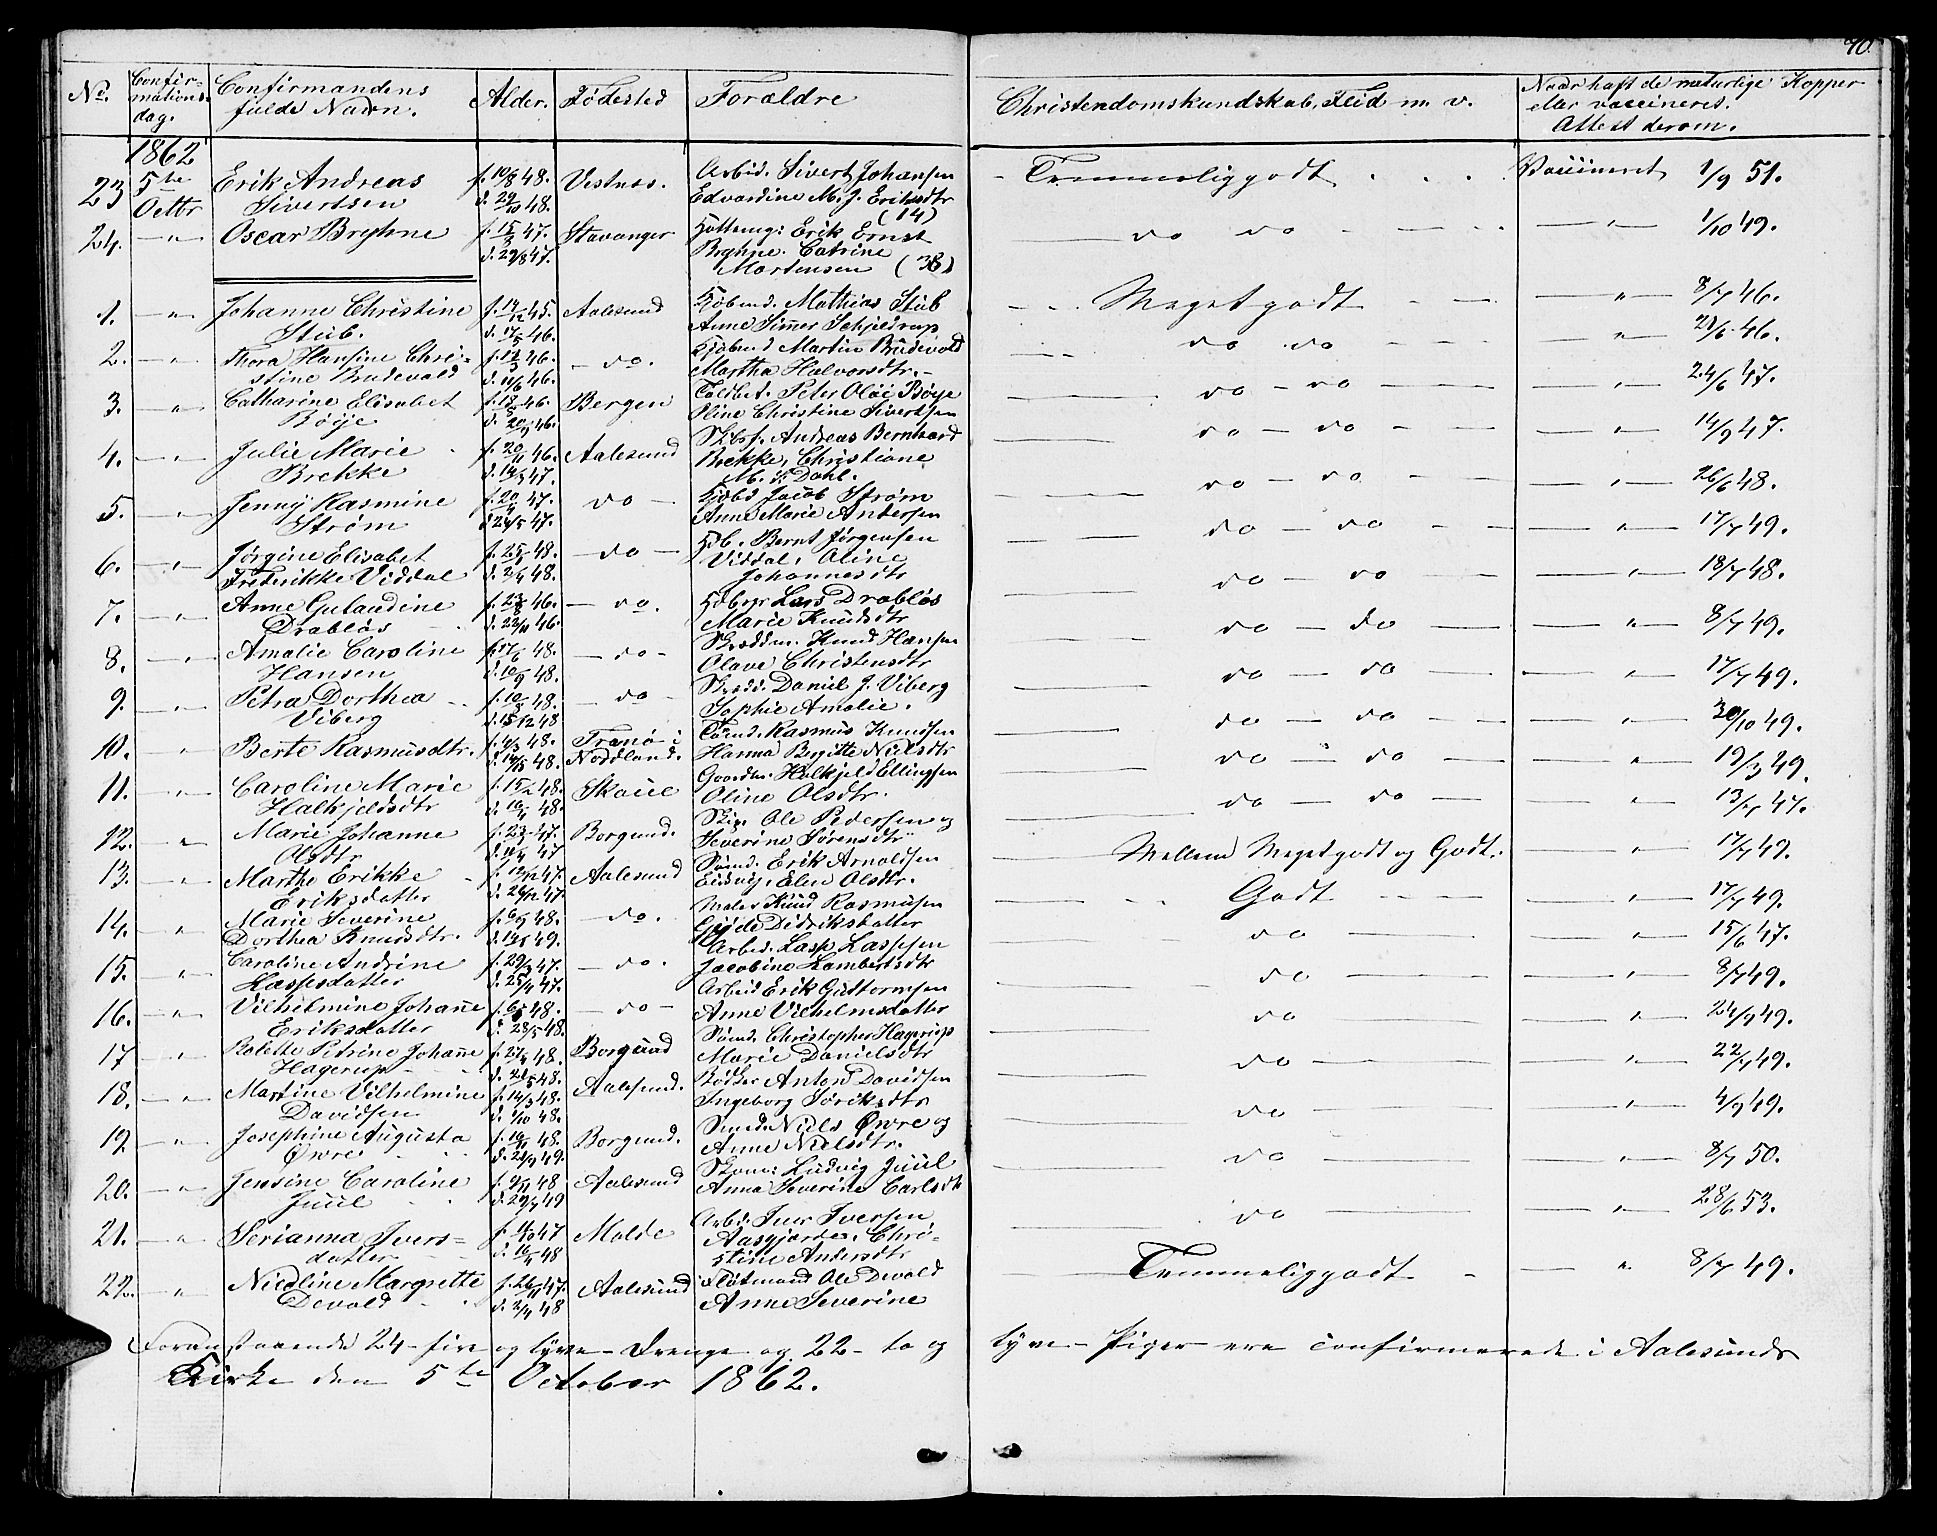 70.
No. Confirmations dag. Confirmandens fulde Navn. Alder. Födested Forældre Christendomskundskab, Flid m. v. Naar haft de naturlige Kopper eller vaccineret. Attest derom.
1862
23 5te Octbr Erik Andreas Sivertsen f. 10/8 48. d. 29/10 48. Vestnes. Arbeid. Sivert Johansen Edvardine M. J. Eriksdtr (14) Temmeliggodt Vaccineret 1/9 51.
24. — " — Oscar Bryhne f. 15/3 47. d. 29/8 47. Stavanger Erik Ernst Bryhne. Catrine Martensen (38) do do — " — 1/10 49.
1. — " — Johanne Christine Stub. f. 14/12 45. d. 17/5 46. Aalesund Kjøbmd. Mathias Stub Anne Simer Schjeldrup Meget godt — " — 8/7 46.
2. — " Thora Hansine Christine Brudevold f. 12/3 46. d. 11/6 46. — do. Kjøbmd Martin Brudevold Martha Halvorsdtr. do do " 21/6 46.
3. — " Catharine Elisabet Böije f. 18/8 46. d. 20/9 46. Bergen Toldbet. Peter Oläi Böije Oline Christine Sivertsen do — do 24/6 47.
4. — " — Julie Marie Brekke f. 20/11 46. d. 14/3 47. Aalesund Andreas Bernhard Brekke, Christiane M. S. Dahl. do — do — " — 14/9 47.
5. — " Jenny Rasmine Strøm f. 20/4 47. d. 24/5 47. do — Kjøbd Jacob Strøm Anne Marie Andersen do — do — " — 26/6 48.
6. — " — Jørgine Elisabet Frederikke Viddal f. 25/1 48. d. 2/4 48. — do — Bernt Jørgensen Viddal, Oline Johannesdtr do — do — " — 17/7 49.
7. — " Anne Gulaudine Drabløs f. 23/8 46. d. 22/11 46. — do. Lars Drabløs Marie Knudsdtr do — do — " — 18/7 48.
8. — " Amalie Caroline Hansen f. 17/6 48. d. 10/9 48. — do — Knud Hansen Olave Christensdtr do — do — " — 8/7 49.
9. — " — Petra Dorthea Viberg f. 10/8 48. d. 15/12 48 — do — Daniel J. Viberg Sophie Amalie. do — do — " — 17/7 49.
10. " Berte Rasmusdtr. f. 4/3 48. Tranö i Nordland. Rasmus Knudsen Hanna Birgitte Nielsdtr do — do — " — 30/10 49.
11. — " Caroline Marie Halkjeldsdtr f. 15/2 48. d. 16/4 48. Skoue Gaardm. Halkjeld Ellingsen Oline Olsdtr. do — do — " — 19/3 49.
12. — " Marie Johanne Olsdtr f. 23/1 47. Borgund. Ole Pedersen og Severine Sørensdtr do — do — " — 13/7 47.
13. — " — Marthe Erikke Eriksdatter f. 12/12 47. d. 26/12 47. Aalesund Erik Arnoldsen Elen Olsdtr. Mellem Meget godt og Godt. — " — 17/7 49.
14. — " Marie Severine Dorthea Knudsdtr. — do. Maler Knud Rasmusen Didriksdatter Godt — " — 17/7 49.
15. — " Caroline Andrine Laspsdatter f. 29/3 47. d. 25/4 47. — do. Arbeid. Lasp Laspsen Jacobine Lambertsdtr do — " — 15/6 47.
16. — " — Vilhelmine Johane Eriksdatter d. 28/5 48. — do — Arbeid Erik Guttormsen Anne Vilhelmsdatter do — " — 8/7 49.
17 — " Ralette Petrine Johane Hagerup f. 27/4 48. d. 21/5 48. Borgund Christopher Hagerup Marie Danielsdtr do — " — 24/9 49.
18. — " Martine Vilhelmine Davidsen f. 14/3 48. d. 1/10 48. Aalesund. Bödker Anton Davidsen Ingeborg do — " — 22/7 49.
19. — " Josephine Augusta Øwre f. 16/11 48. Borgund. Niels Øwre og Anne Nielsdtr. do — " — 4/9 49.
20. — " — Jensine Caroline Juul f. 9/11 48 d. 29/7 49 Aalesund Ludvig Juul Anna Severine Carlsdtr do — " — 8/7 50.
21. — " — Serianna Iversdatter f. 11/10 47 d. 16/4 48 Molde Arbd. Iver Iversen Aasgjærde, Christine Andersdtr do — " — 28/6 53.
22. — " Nicoline Margrette Devold f. 26/11 47. d. 2/4 48 Aalesund Flötmand Ole Devold Anne Severine Temmeliggodt — " 8/7 49.
Foranstaaende 24 - fire og tyve - Drenge og 22 - to og tyve - Piger ere confirmerede i Aalesunds
Kirke den 5te October 1862.